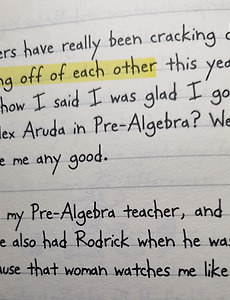 ers have really been cracking
ng off of each other this yea
how I said I was glad I go
lex Aruda in Pre-Algebra? We
e me any good.
my Pre-Algebra teacher, and
e also had Rodrick when he wa
use that woman watches me like